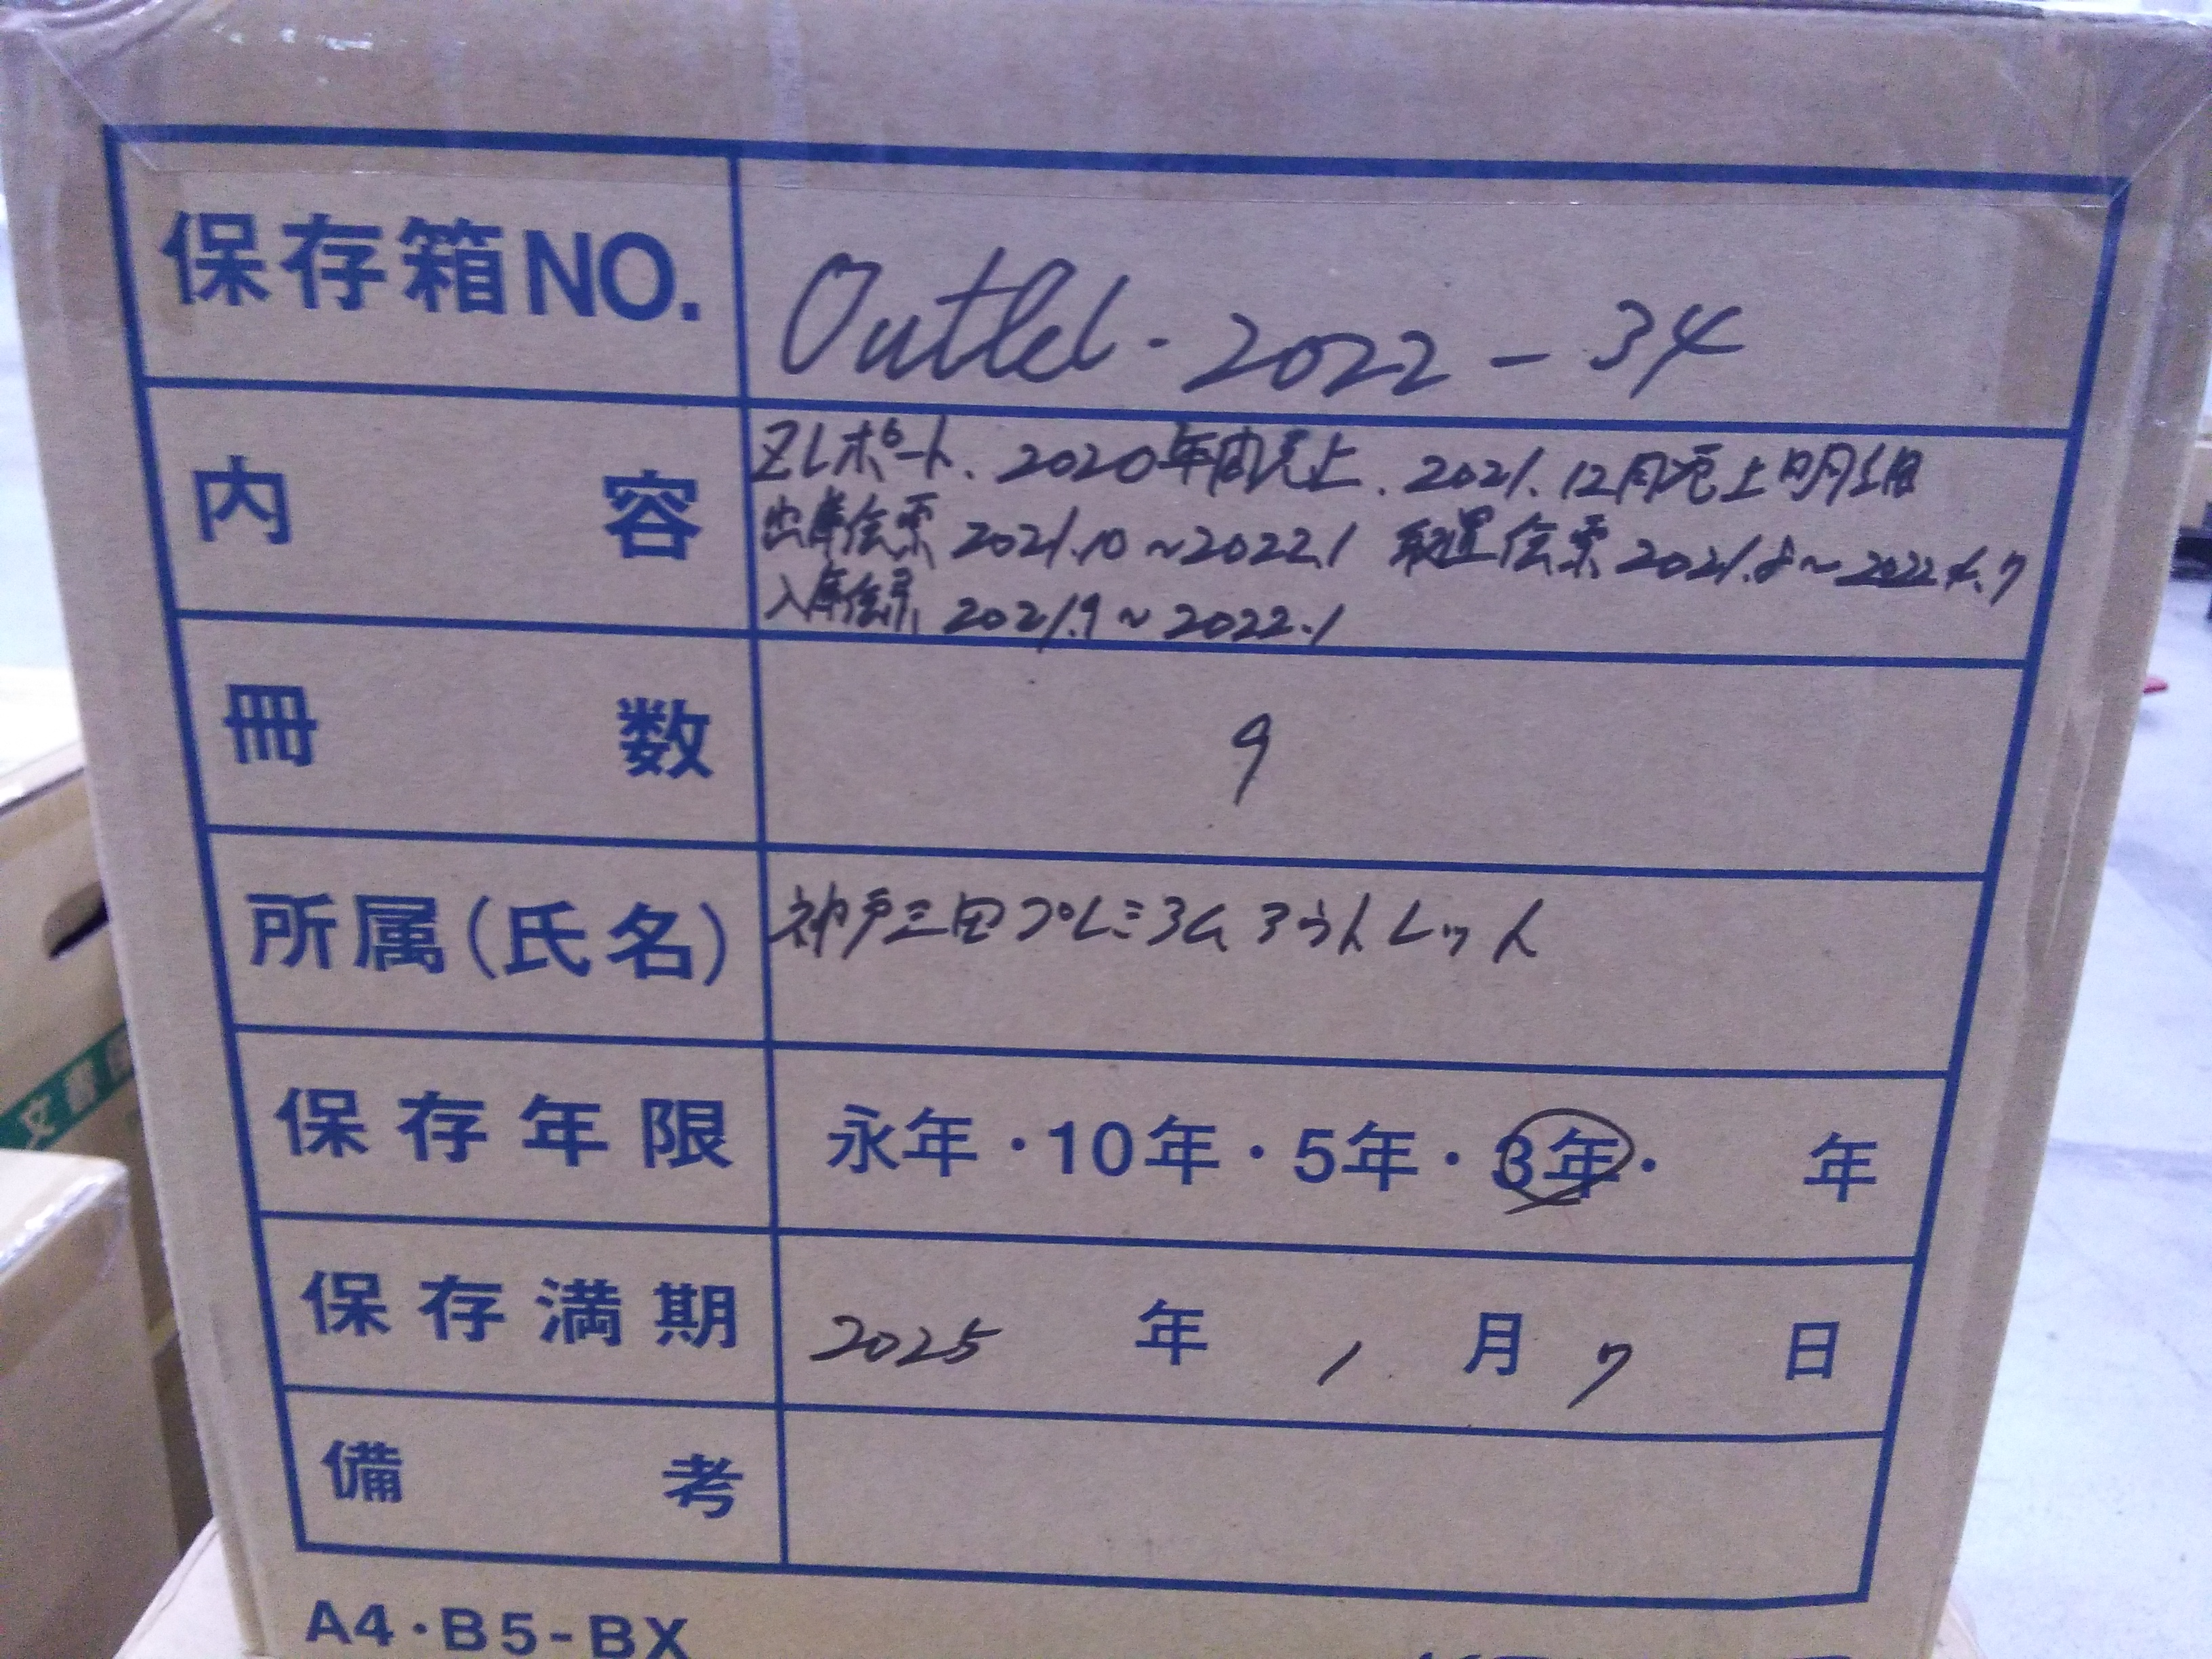 保存箱NO. Outlet-2022-34
内容 Zレポート、2020年間売上、2021.12月売上明細
出庫伝票 2021.10~2022.1 取置伝票 2021.8~2022.1.7
入庫伝票 2021.9~2022.1
冊数 9
所属(氏名) 神戸三田プレミアムアウトレット
保存年限 永年・10年・5年・3年・ 年
保存満期 2025年1月7日
備考
A4・B5-BX
文書